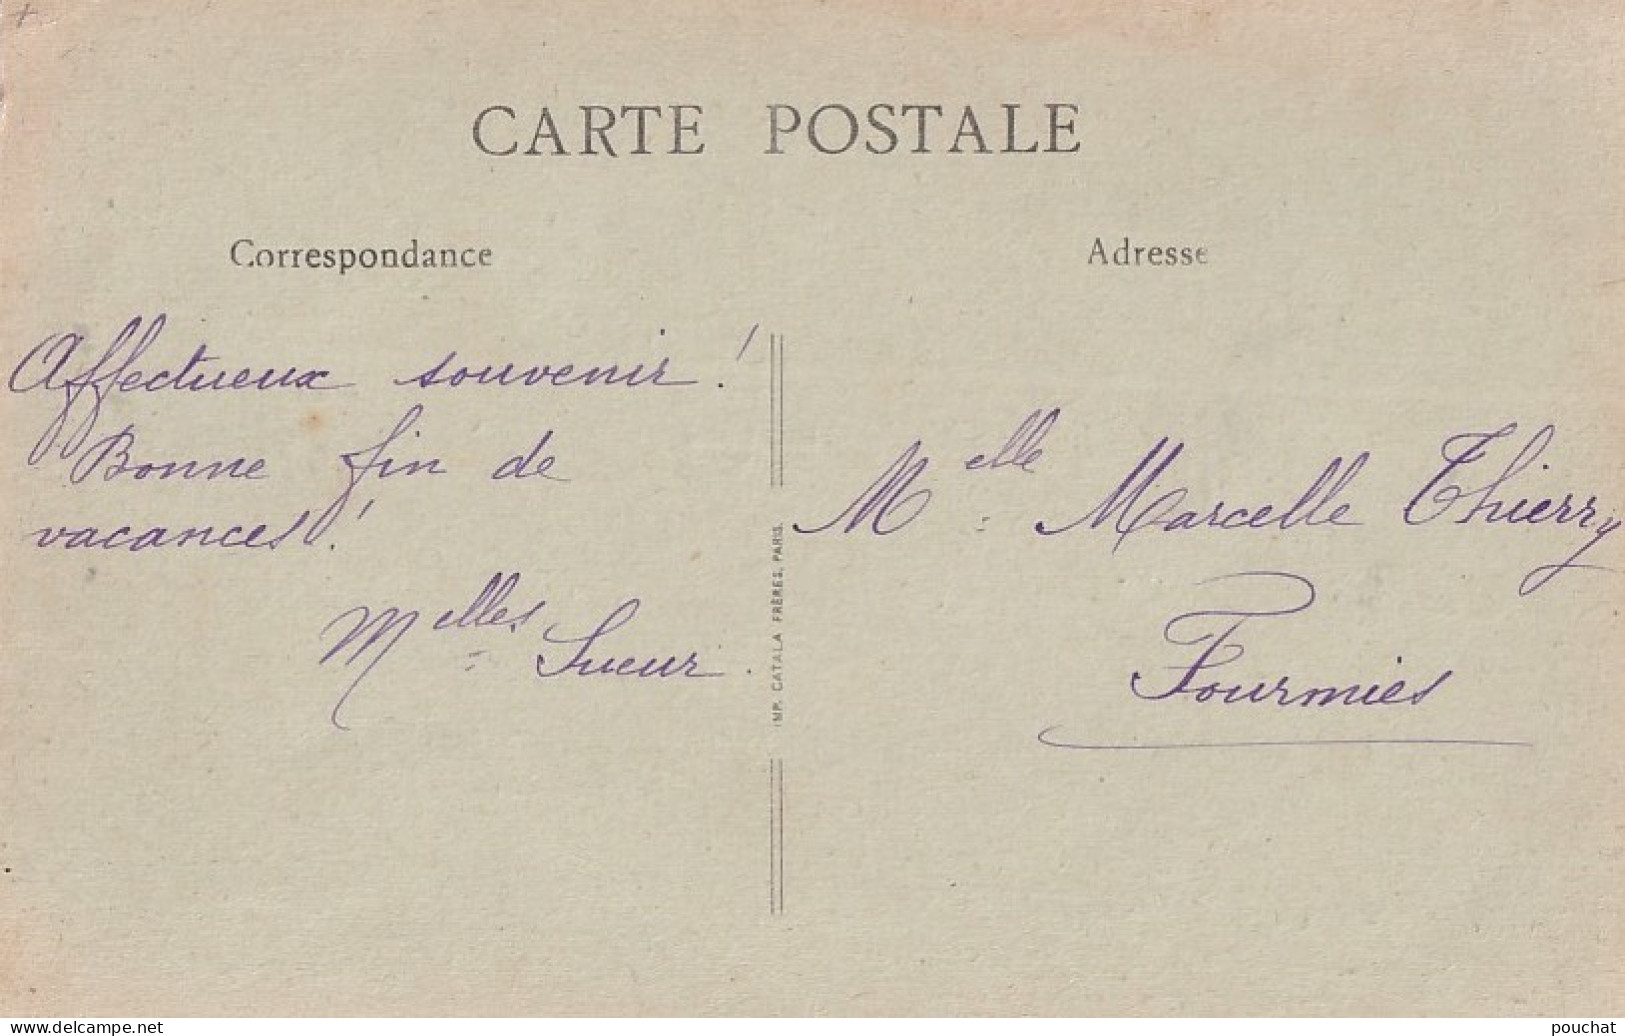 CARTE POSTALE
Correspondance
Affectueux souvenir !
Bonne fin de
vacances !
Melles Sueur.
IMP. CATALA FRÈRES, PARIS.
Adresse
Melle Marcelle Thierry
Fourmies
www.delcampe.net
pouchat